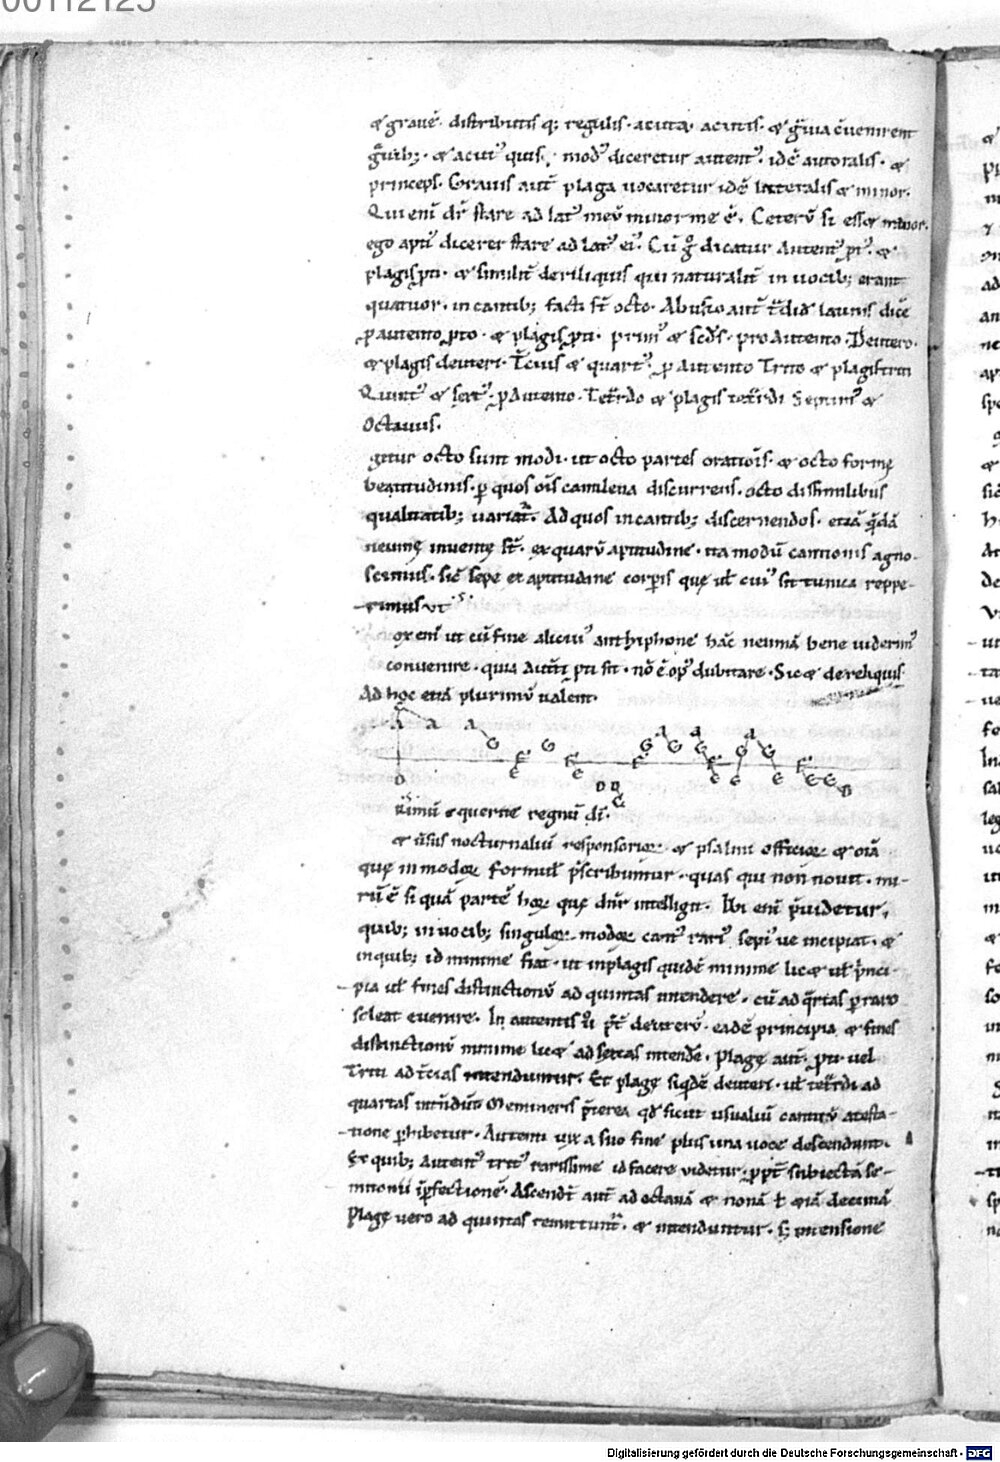 00112125
& gravē. distributis q; regulis. acuta. acutis. & g̃uia cuenirent
g̃uib;. & acut᾽ quis; mod᾽ diceretur autent᾽. idē autoralis. &
princeps. Grauis aut̄ plaga uocaretur idē lateralis & minor.
Qui enī dr̄ stare ad lat᾽ meū minor me ē. Ceterū si ess& minor.
ego apti᾽ dicerer stare ad lat᾽ ei᾽. Cū g̊ dicatur Autent᾽ pt᾽. &
plagis pti. & similit̄ de reliquis qui naturalit̄ in uocib; erant
quatuor. in cantib; facti st̄ octo. Abusio aut̄ t̄did᾽ latinis dicē
p̄ autento pto. & plagis pti. prim᾽ & scd᾽s. pro Autento. Deutero.
& plagis deuteri. T̄cius & quart᾽. p̄ Autento Trito & plagis triti
Quint᾽ & sext᾽. p̄ Autento. Tet̄rdo & plagis tet̄rdi Septim᾽ &
Octauus.
gitur octo sunt modi. ut octo partes orationis. & octo formę
beatitudinis. p̱ quos ois cantilena discurrens. octo dissimilibus
qualitatib; uariat̄. Ad quos in cantib; discernendos. etiā q̄dā
neumę inuentę st̄. ex quarū aptitudine. ita modū cantionis agno-
scimus. sic̄ sepe ex aptitudine corpis quę ul̄ cui᾽ sit tunica reppe-
rimus. vt
ox enī ut cū fine alicui᾽ anthiphonę hāc neumā bene uiderim᾽
conuenire. quia Autēti pti sit. nō ē op᾽ dubitare. Sic & de reliquis
Ad hoc etiā plurimū ualent.
A A A G F E G F E D D C F G A G A G F E E G A G E F E E D
Rimū querite regnū dī.
& usus nocturnaliū responsorioꝝ & psalmi officioꝝ & oīa
quę in modoꝝ formul᾽ p̄scribuntur. quas qui non nouit. mi-
rū ē si quā partē hoꝝ quę dn̄r intelligit. Ibi enī p̄uidetur.
quib; in uocib; singuloꝝ modoꝝ cant᾽ rari᾽ sepi᾽ue incipiat. &
in quib; id minime fiat. ut in plagis quidē minime lic& ul̄ p̄nci-
pia ul̄ fines distinctionū ad quintas intendere. cū ad q̄rtas p̱raro
soleat euenire. In autentis u̇o p̄t̄ deuterū. eadē principia & fines
distinctionū minime lic& ad sextas intendē. Plagę aut̄. pti uel
Triti ad t̄cias intenduntur. Et plagę siq̇dē deuteri. ul̄ tet̄rdi ad
quartas intn̄dūt᾽. Memineris p̄terea qd᾽ sicut usualiū cantuū atesta-
tione p̱hibetur. Autenti uix a suo fine plus una uoce descendunt.
Ex quib; autent᾽ trit᾽ rarissime id facere videtur. ppt̄ subiectā se-
mitonii īp̱fectionē. Ascendt̄ aut̄ ad octauā & nonā ł &iā decimā
Plagę uero ad quintas remittunt̄. & intenduntur. S; intensione
Digitalisierung gefördert durch die Deutsche Forschungsgemeinschaft - DFG